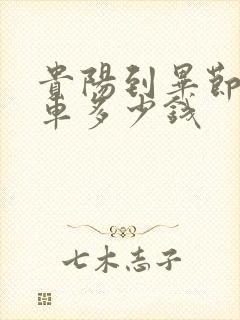 貴陽到畢節
車多少錢
七木志子